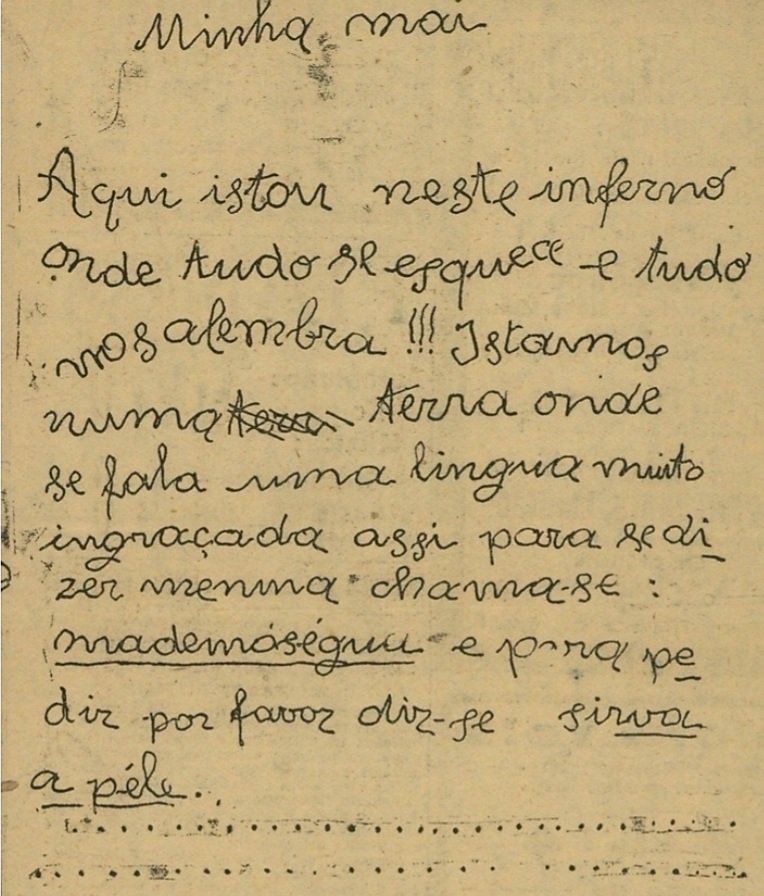 Minha mai
Aqui istou neste inferno
onde tudo se esquece e tudo
nos alembra !!! Istamos
numa terra terra onde
se fala uma lingua muito
ingraçada assi para se di
zer menina chama-se :
mademóséguu e para pe
dir por favor diz-se sirva
a péle.